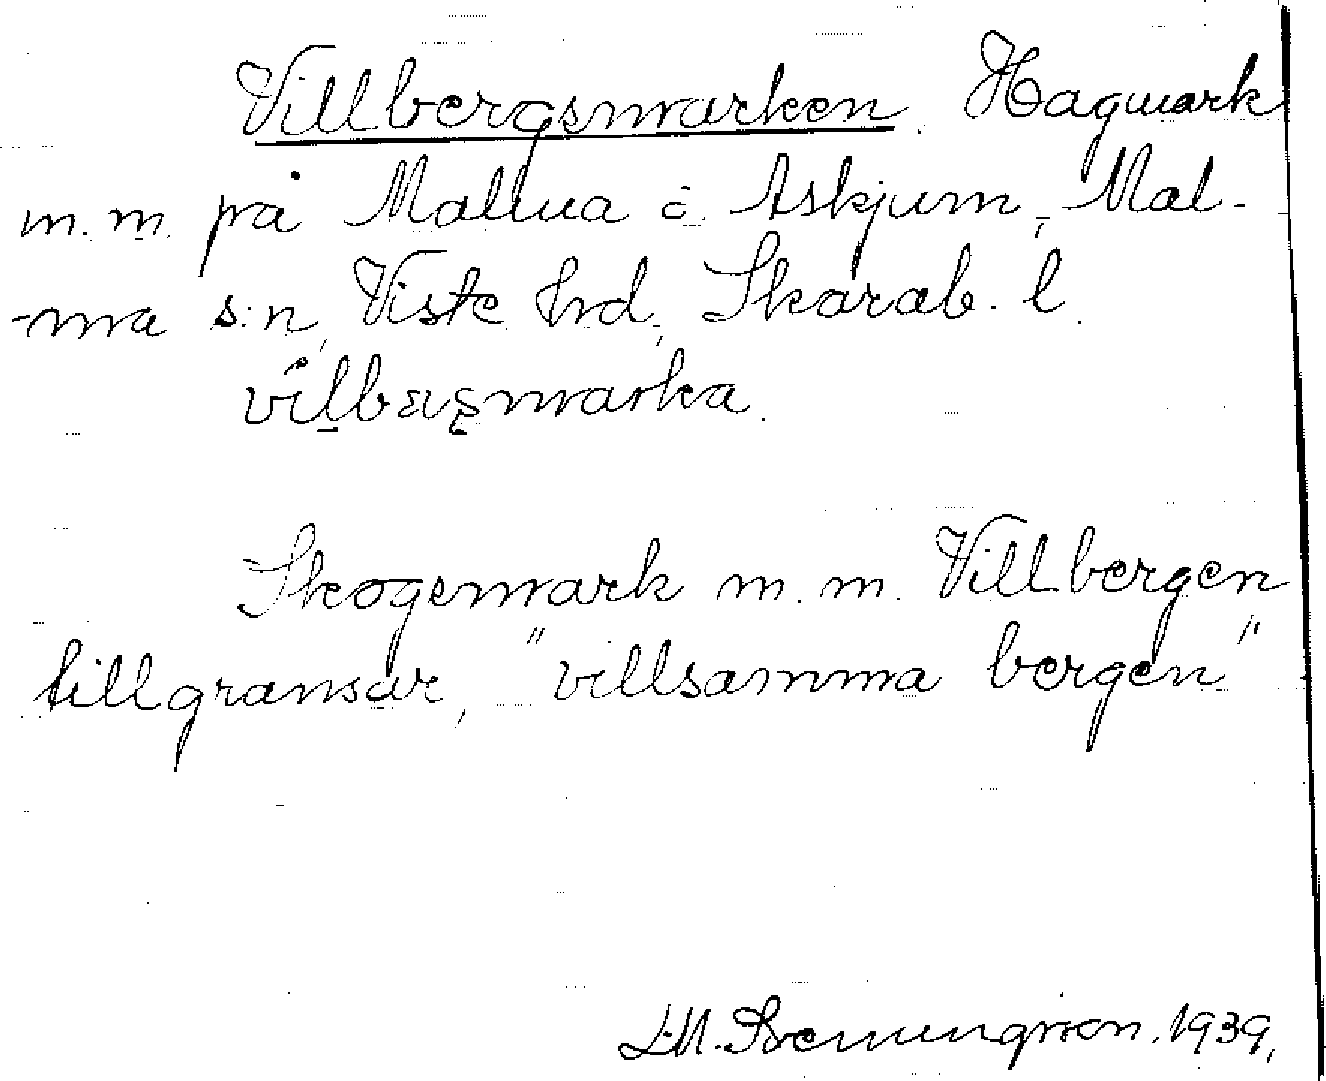 Villbergsmarken. Hagmark
m.m. på Mallua o. Askjum, Mal-
-ma s:n, Viste hrd, Skarab. l.
vílbæṣmarka.
Skogsmark m.m. Villbergen
tillgränsar, "villsamma bergen"
L.M. Svenungsson. 1939,